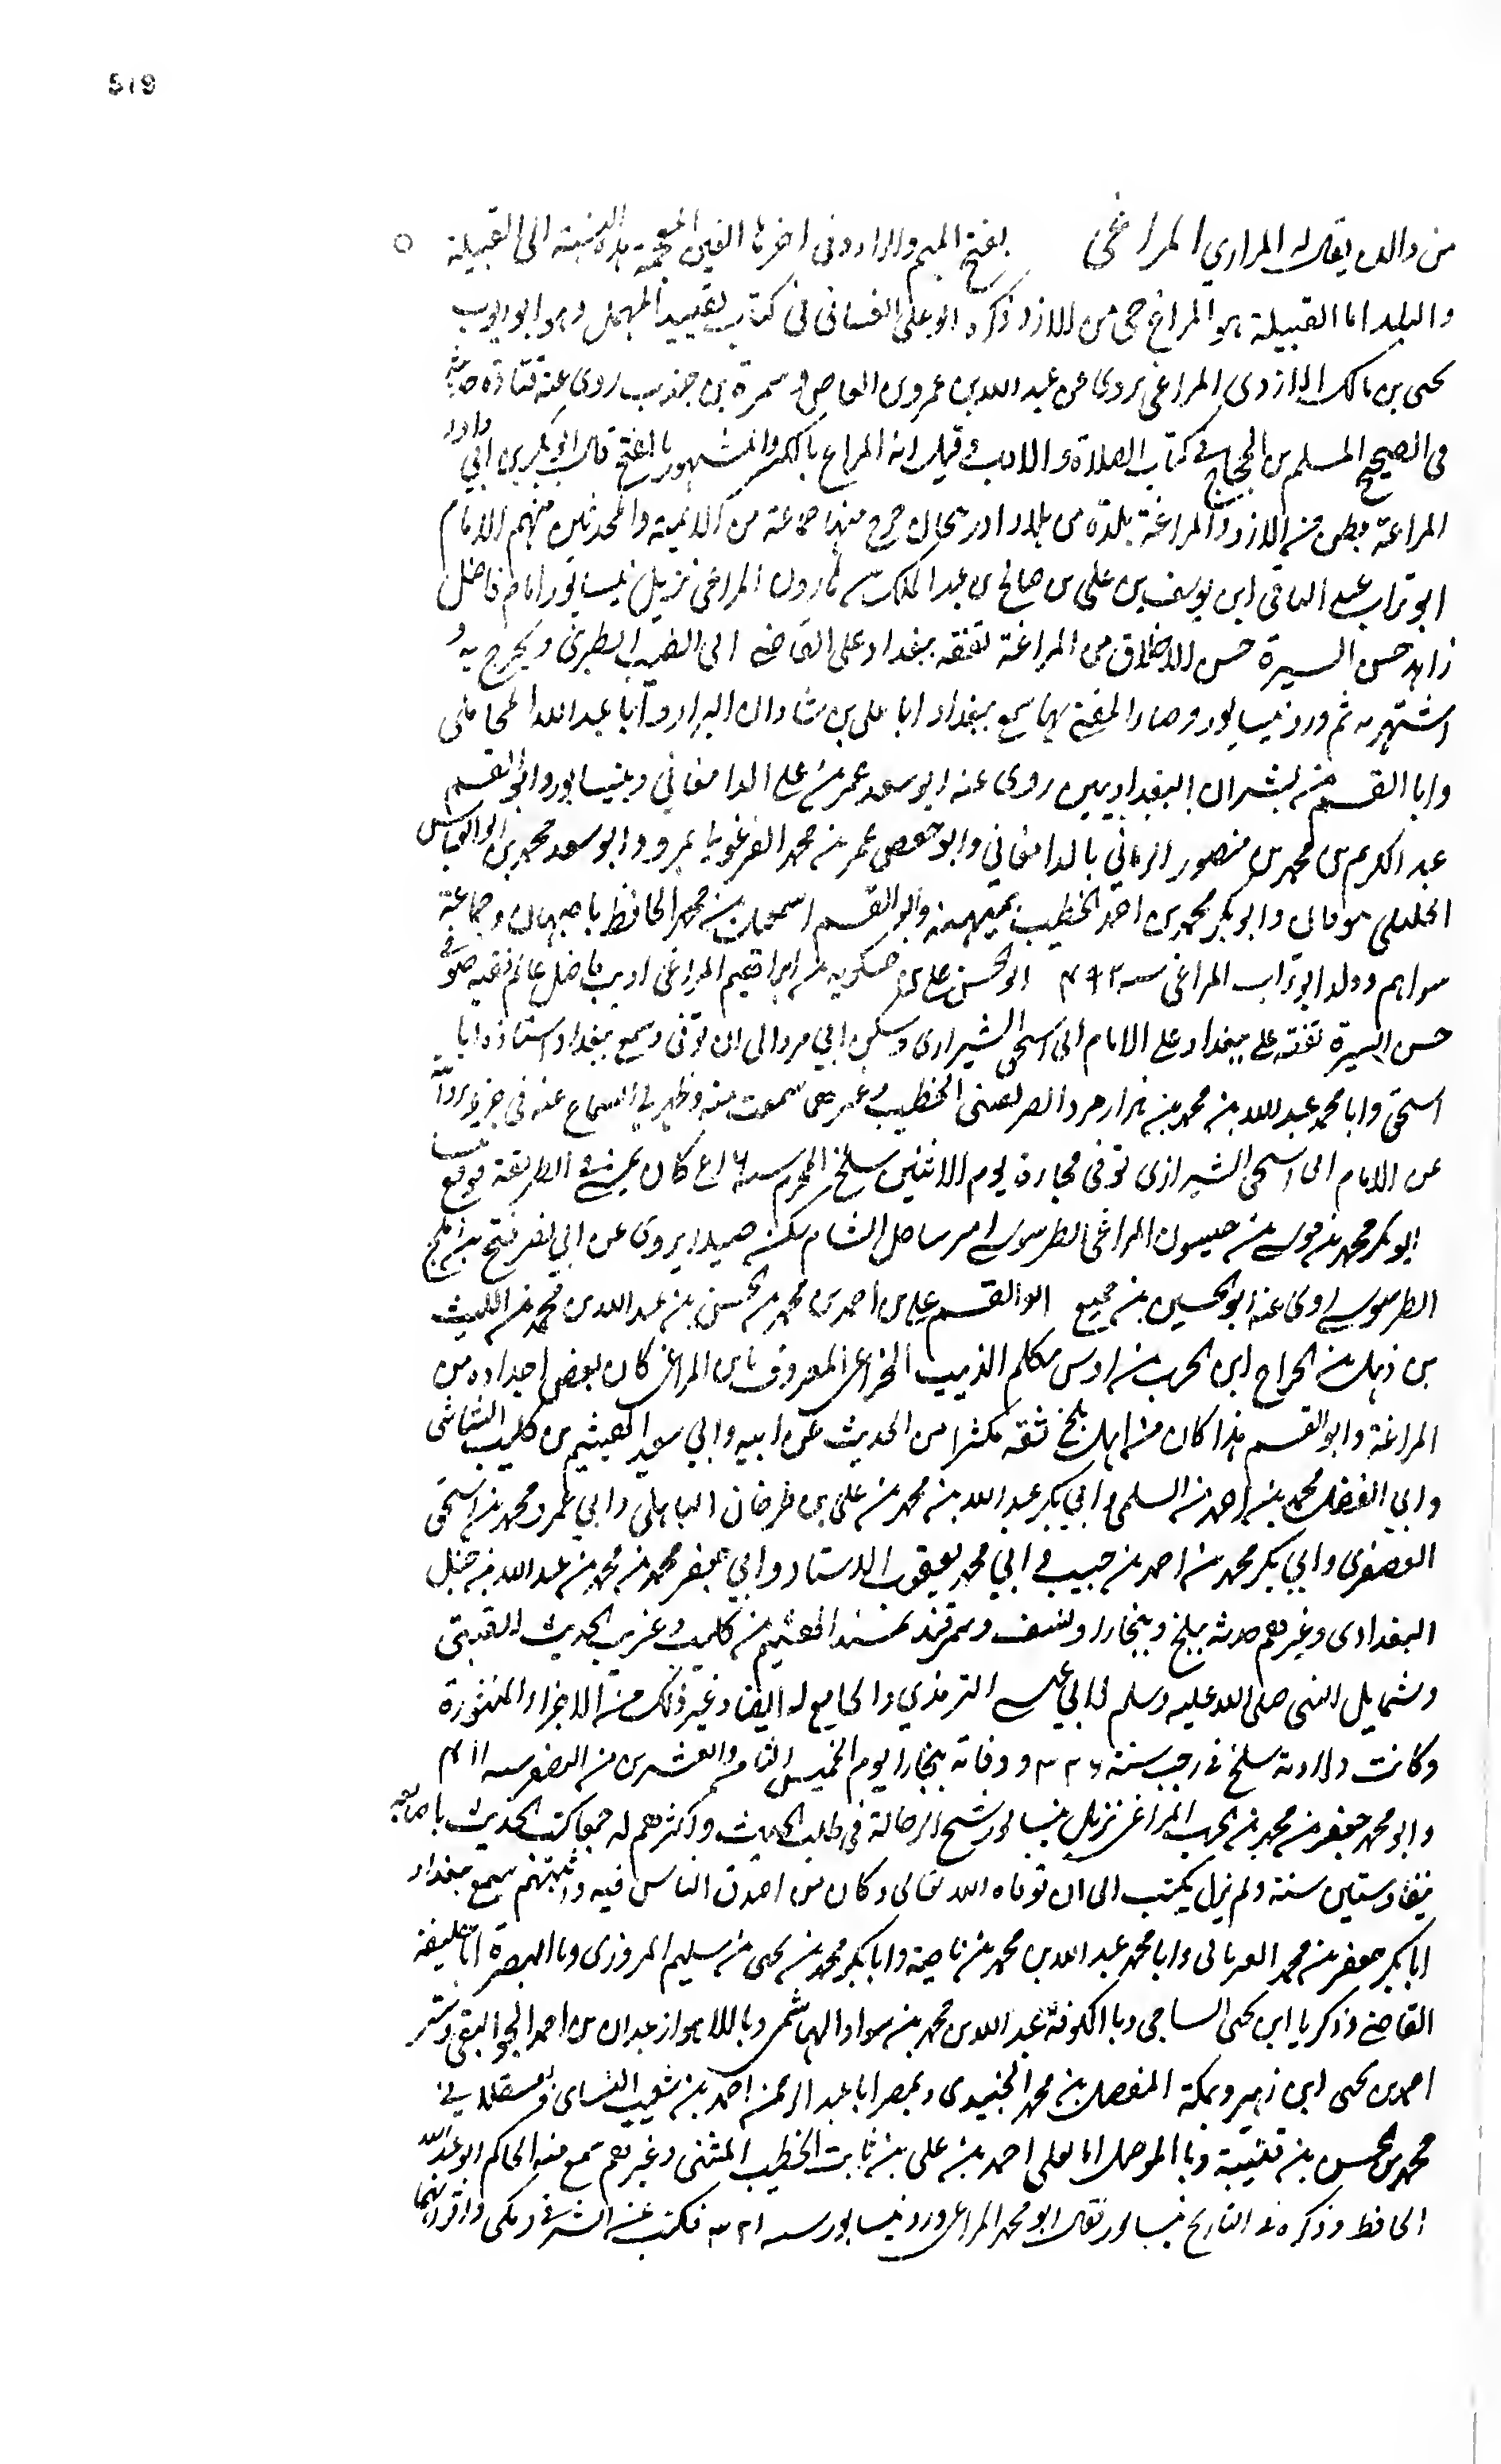 519
من والدى يقال له المراري المراغي بفتح الميم والراء وفى اخرها الغين المعجمة هذه النسبة الى القبيلة
والبلد اما القبيلة هو المراغ حى من الازد ذكره ابو على الغسانى فى كتاب تقييد المهمل وهو ابو ايوب
يحيى بن مالك الازدى المراغى يروى عن عبد الله بن عمرو بن العاص و سمرة بن جندب روى عنه قتادة حديثه
فى الصحيح المسلم بن الحجاج فى كتاب الصلاة و الادب و قيل انه المراغ بالكسر والمشهور بالفتح قال ابو بكر بن ابي داود
المراغة بطن من الازد والمراغة بلدة من بلاد اذربيجان خرج منها جماعة من الائمية والمحدثين منهم الامام
ابو تراب عبد الباقى ابن يوسف بن على بن صالح بن عبد الملك بن هارون المراغى نزيل نيسابور امام فاضل
زاهد حسن السيرة حسن الاخلاق من المراغة تفقه ببغداد على القاضى ابى الطيب الطبرى و تخرج به و
اشتهر به ثم ورد نيسابور و صار المفتى بها سمع ببغداد ابا على بن شاذان البزار و ابا عبد الله المحاملى
وابا القسم بن بشران البغداديين روى عنه ابو سعد عمر بن على الدامغاني وبنيسابور وابو القسم
عبد الكريم بن محمد بن منصور الرماني بالدامغاني وابو حفص عمر بن محمد الفرغو يا بمرو و ابو سعد محمد بن ابو العباس
الخليلى بنوقان وابو بكر محمد بن احمد الخطيب بميهنه وابو القسم اسمعيل بن محمد الحافظ باصبهان و جماعة
سواهم وولد ابو تراب المراغى سنه ۴۹۲ ابو الحسن على بن حسكويه بن ابراهيم المراغى اديب فاضل عالم فقيه صوفى
حسن السيرة تفقه على ببغداد على الامام ابى اسحق الشيرازى وسكن ابي مرو الى ان توفى وسمع ببغداد استاذه ابا
اسحق وابا محمد عبد الله بن محمد بن هزارمرد الصريفينى الخطيب وغيرهما سمعت منه وظهر لي السماع عنه فى جزء يرواه
عن الامام ابى اسحق الشيرازى توفى فجاءة يوم الاثنين سلخ المحرم كان يمشى فى الطريق فوقع
ابو بكر محمد بن موسى بن حبسون المراغى الطرسوسى امر ساحل الشام سكن صيدا يروى عن ابي نصر فتح بن افلح
الطرسوسى روى عنه ابو الحسين بن جميع ابو القسم على بن احمد بن محمد بن الحسن بن عبد الله بن محمد بن الليث
بن ذهل بن الجراح ابن الحرب بن اوس مكلم الذئب الخزاعى المعروف بابن المراغى كان بعض اجداده من
المراغة وابو القسم هذا كان من اهل بلخ ثقة مكثرا من الحديث عن ابيه وابي سعيد الهيثم بن كليب الشاشى
وابي الفضل محمد بن احمد بن السلمى و ابي بكر عبد الله بن محمد بن على بن طرخان الباهلى وابي عمرو محمد بن اسحق
العصفرى وابي بكر محمد بن احمد بن حبيب و ابي محمد يعقوب الاستاد وابي جعفر محمد بن محمد بن عبد الله بن جميل
البغدادى وغيرهم حدث ببلخ وببخارا ونسف وسمرقند بمسند الهيثم بن كليب وغريب الحديث القتبى
وشمايل النبى صلى الله عليه وسلم لابي عيسى الترمذي والجامع له ايضا وغير ذلك من الاجزاء المنثورة
وكانت ولادته سلخ فى رجب سنة ۳۲۶ ووفاته ببخارا يوم الخميس الثامن والعشرين من الصفر سنه ۴۱۱
وابو محمد جعفر بن محمد بن الحرب المراغى نزيل نيسابور شيخ الرحالة فى طلب الحديث واكثرهم له جمعا كتب الحديث باصابعه
نيفا وستين سنة ولم يزل يكتب الى ان توفاه الله تعالى وكان من اصدق الناس فيه واثبتهم سمع ببغداد
ابا بكر جعفر بن محمد الفريابى وابا محمد عبد الله بن محمد بن ناجية وابا بكر محمد بن يحيى بن سليم المروزى وبالبصرة ابا خليفة
القاضى وزكريا ابن يحيى الساجى وبالكوفة عبد الله بن محمد بن سوادا الهاشمى وبالاهواز عبدان بن احمد الجواليقى وتستر
احمد بن يحيى ابن زهير وبمكة المفضل بن محمد الجنيدى وبمصر ابا عبد الرحمن احمد بن شعيب النساى وبعسقلان
محمد بن الحسن بن قتيبة وبالموصل ابا يعلى احمد بن على بن ثابت الخطيب المثنى وغيرهم سمع منه الحاكم ابو عبد الله
الحافظ وذكره فى التاريخ نيسابور فقال ابو محمد المراغى ورد نيسابور سنه فكتب عن الشرقى ومكى واقرانهما